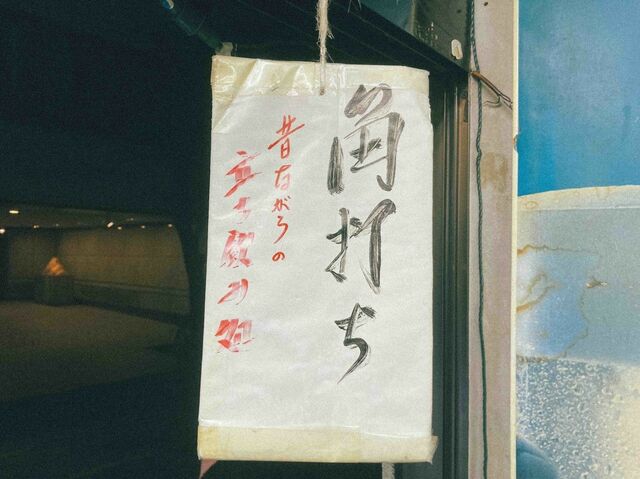 角打ち
昔ながらの
立ち飲み処